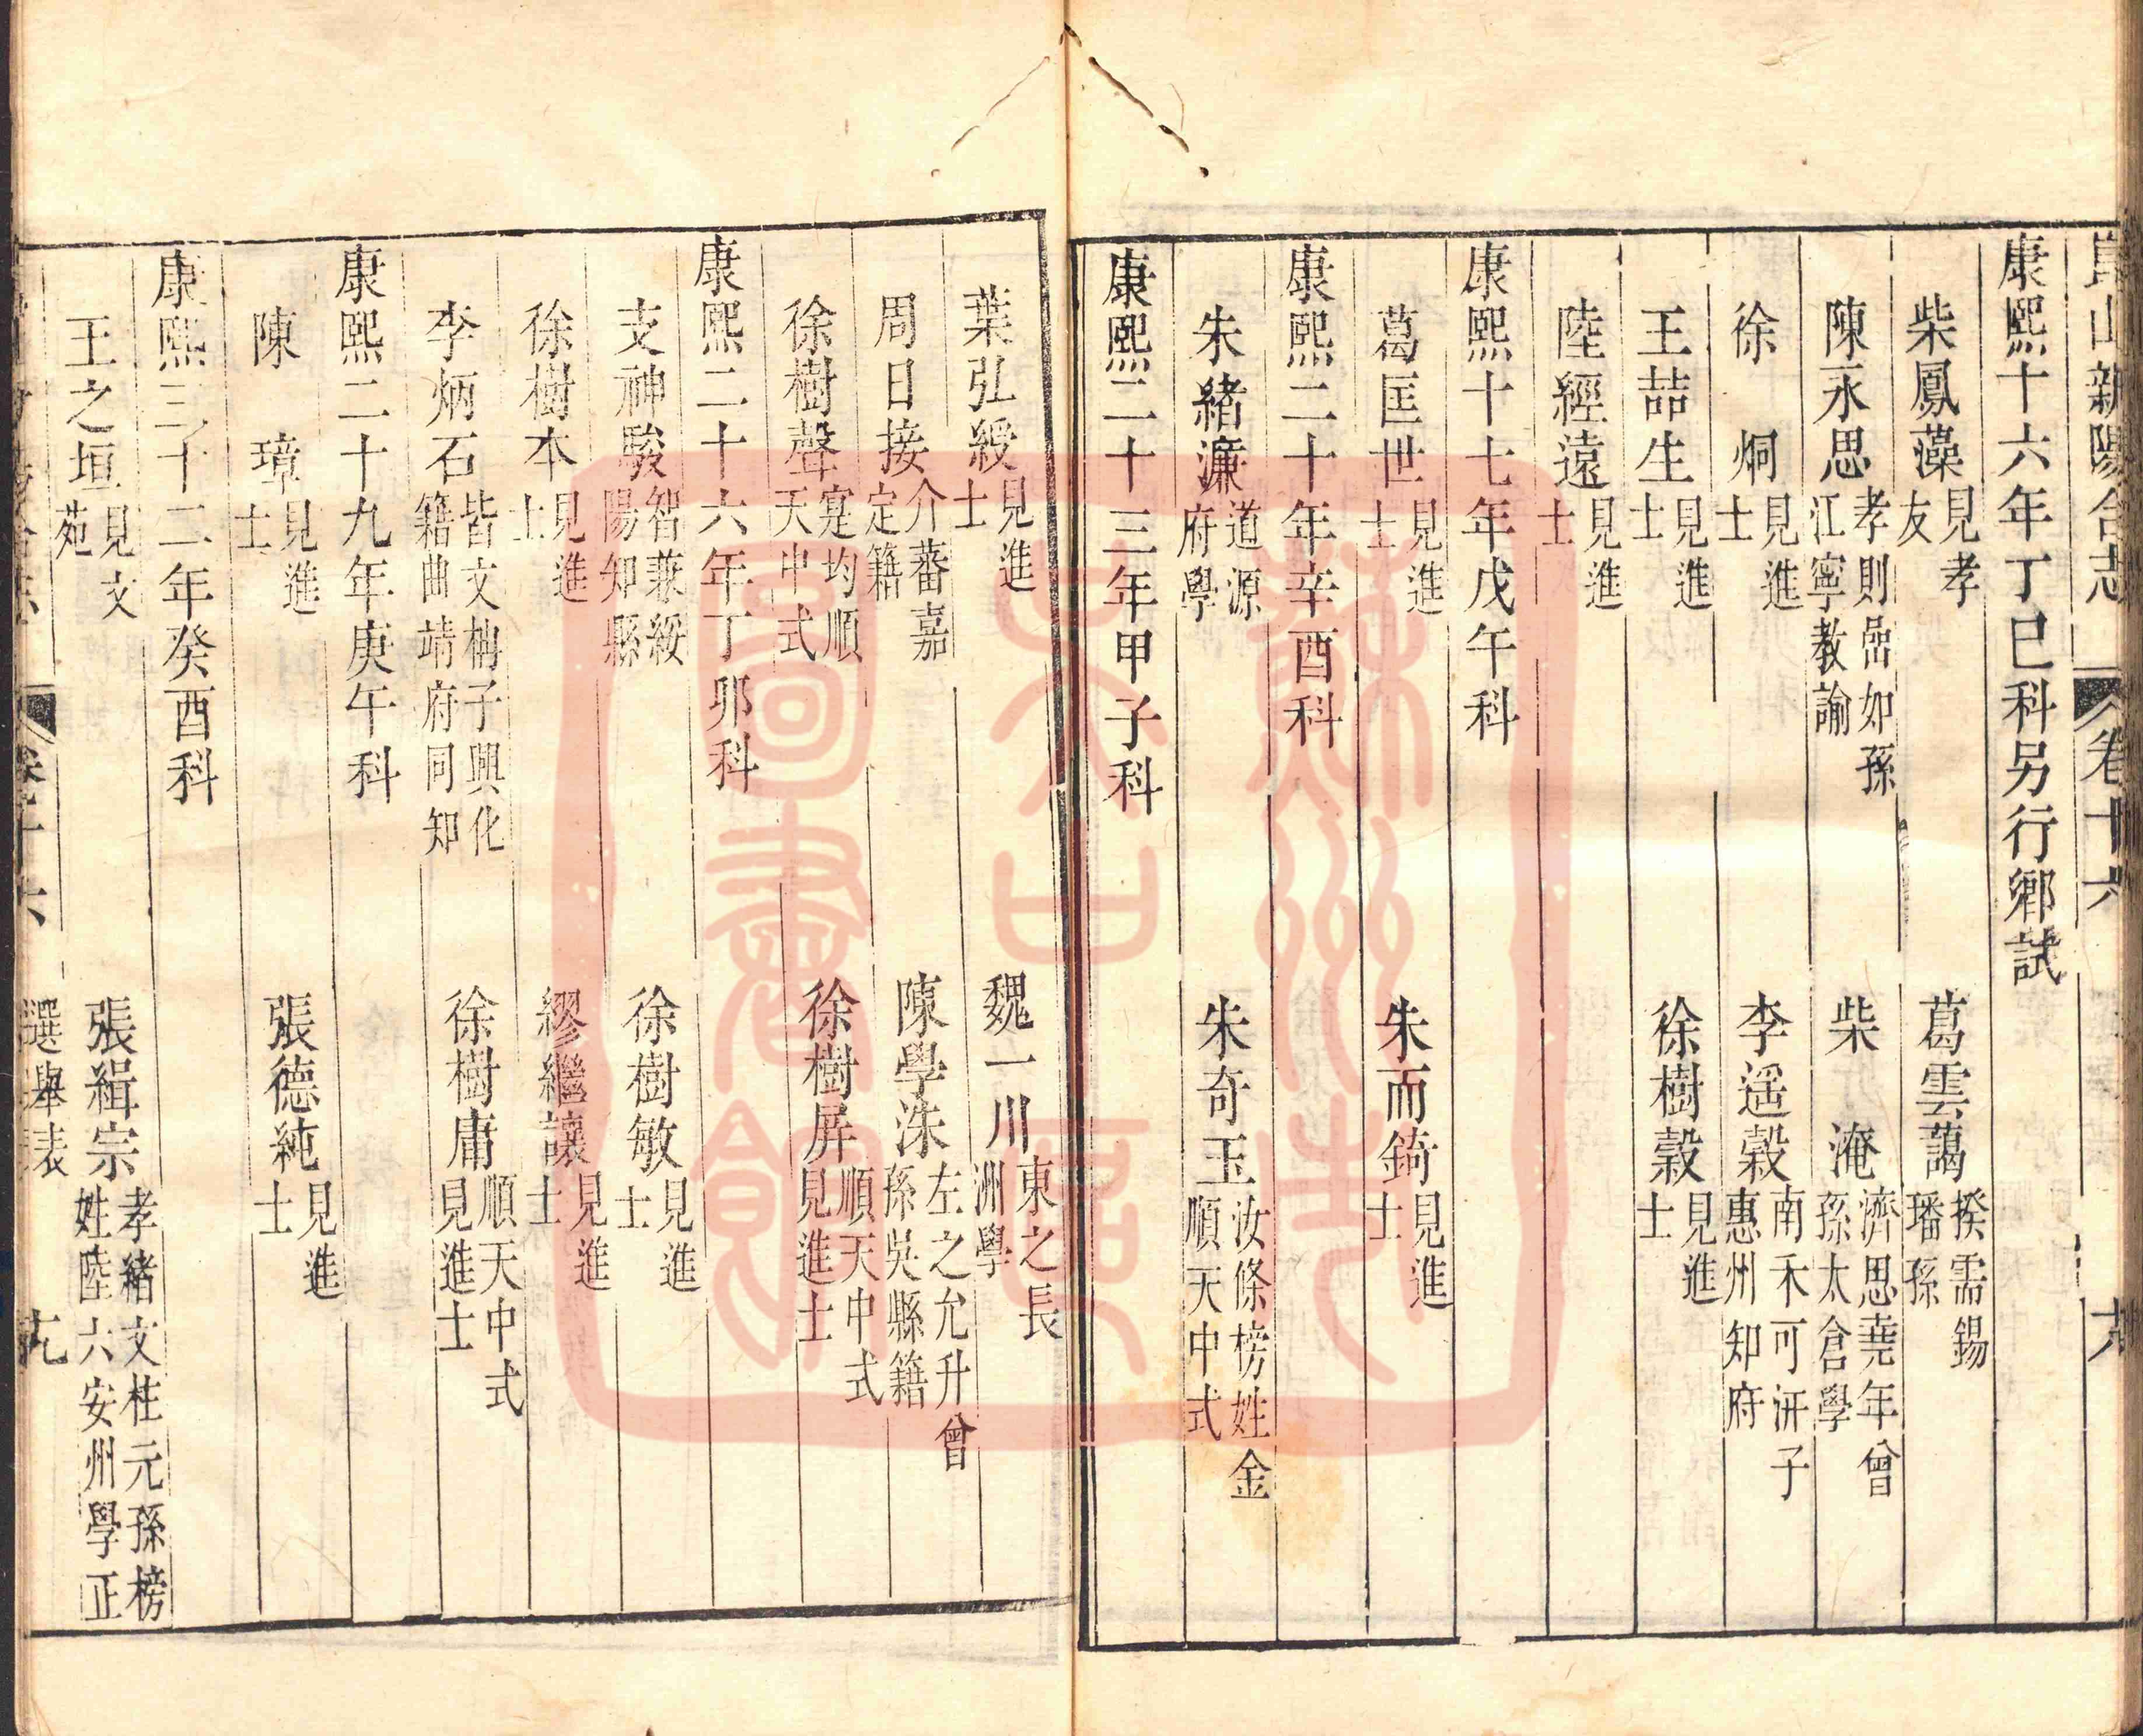 崑山新陽合志 卷十六 大
康熙十六年丁巳科另行鄉試
柴鳳藻 見孝友 葛雲藹 揆需錫璠孫
陳永思 孝則喦如孫江寧教諭 柴 淹 濟思堯年曾孫太倉學
徐 炯 見進士 李遥穀 南禾可汧子惠州知府
王喆生 見進士 徐樹榖 見進士
陸經遠 見進士
康熙十七年戊午科
葛匡世 見進士 朱而錡 見進士
康熙二十年辛酉科
朱緒濂 道源府學 朱奇玉 汝條榜姓金順天中式
康熙二十三年甲子科
葉弘綬 見進士 魏一川 東之長洲學
周日接 介蕃嘉定籍 陳學洙 左之允升曾孫吳縣籍
徐樹聲 寔均順天中式 徐樹屏 順天中式見進士
康熙二十六年丁卯科
支神駿 智兼綏陽知縣 徐樹敏 見進士
徐樹本 見進士 繆繼讓 見進士
李炳石 皆文柟子興化籍曲靖府同知 徐樹庸 順天中式見進士
康熙二十九年庚午科
陳 璋 見進士 張德純 見進士
康熙三十二年癸酉科
王之垣 見文苑 張緝宗 孝緒文柱元孫榜姓陸六安州學正
卷十六 選舉表
蘇州市
圖書館